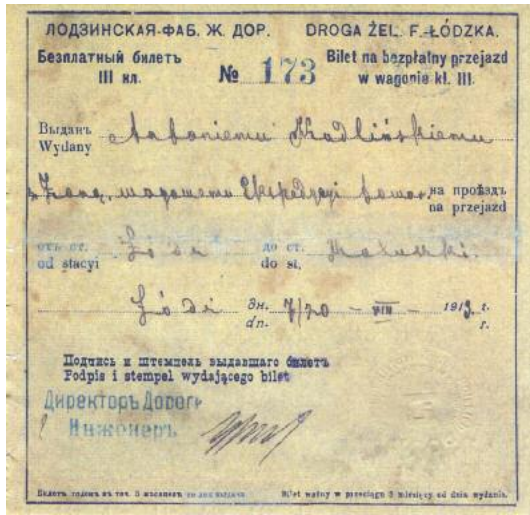 ЛОДЗИНСКАЯ-ФАБ. Ж. ДОР. DROGA ŻEL. F.-ŁÓDZKA.
Безплатный билетъ Bilet na bezpłatny przejazd
III кл. № 173 w wagonie kl. III.
Выданъ
Wydany Antoniemu
z Żoną, wagowemu Ekspedycyi towar. на проѣздъ
na przejazd
отъ ст. Łódź до ст. Koluszki.
od stacyi do st.
Łódź дн. 7/20 - VIII - 1913 г.
dn. r.
Подпись и штемпель выдавшаго билетъ
Podpis i stempel wydającego bilet
Директоръ Дороги
Инженеръ
Билетъ годенъ въ теч. 3 мѣсяцевъ со дня выдачи. Bilet ważny w przeciągu 3 miesięcy od dnia wydania.